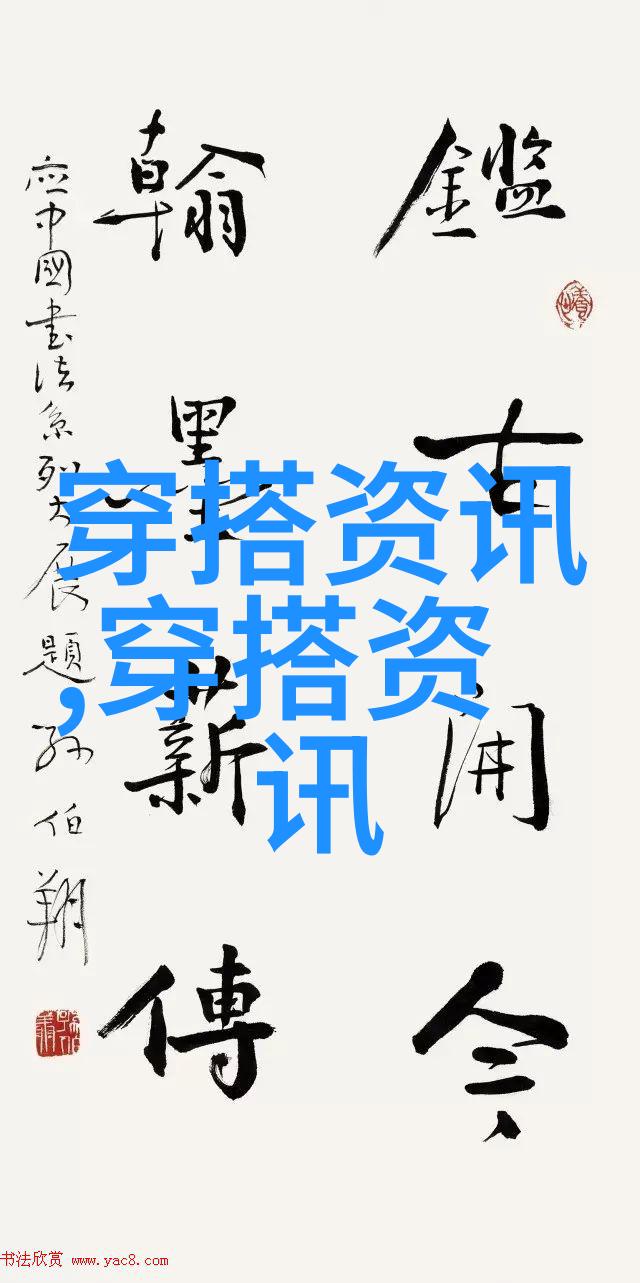 鑑古開今
翰墨薪傳
應中國書法系列大展題 孫伯翔
穿搭资讯
,穿搭资
讯
书法欣赏 www.yac8.com